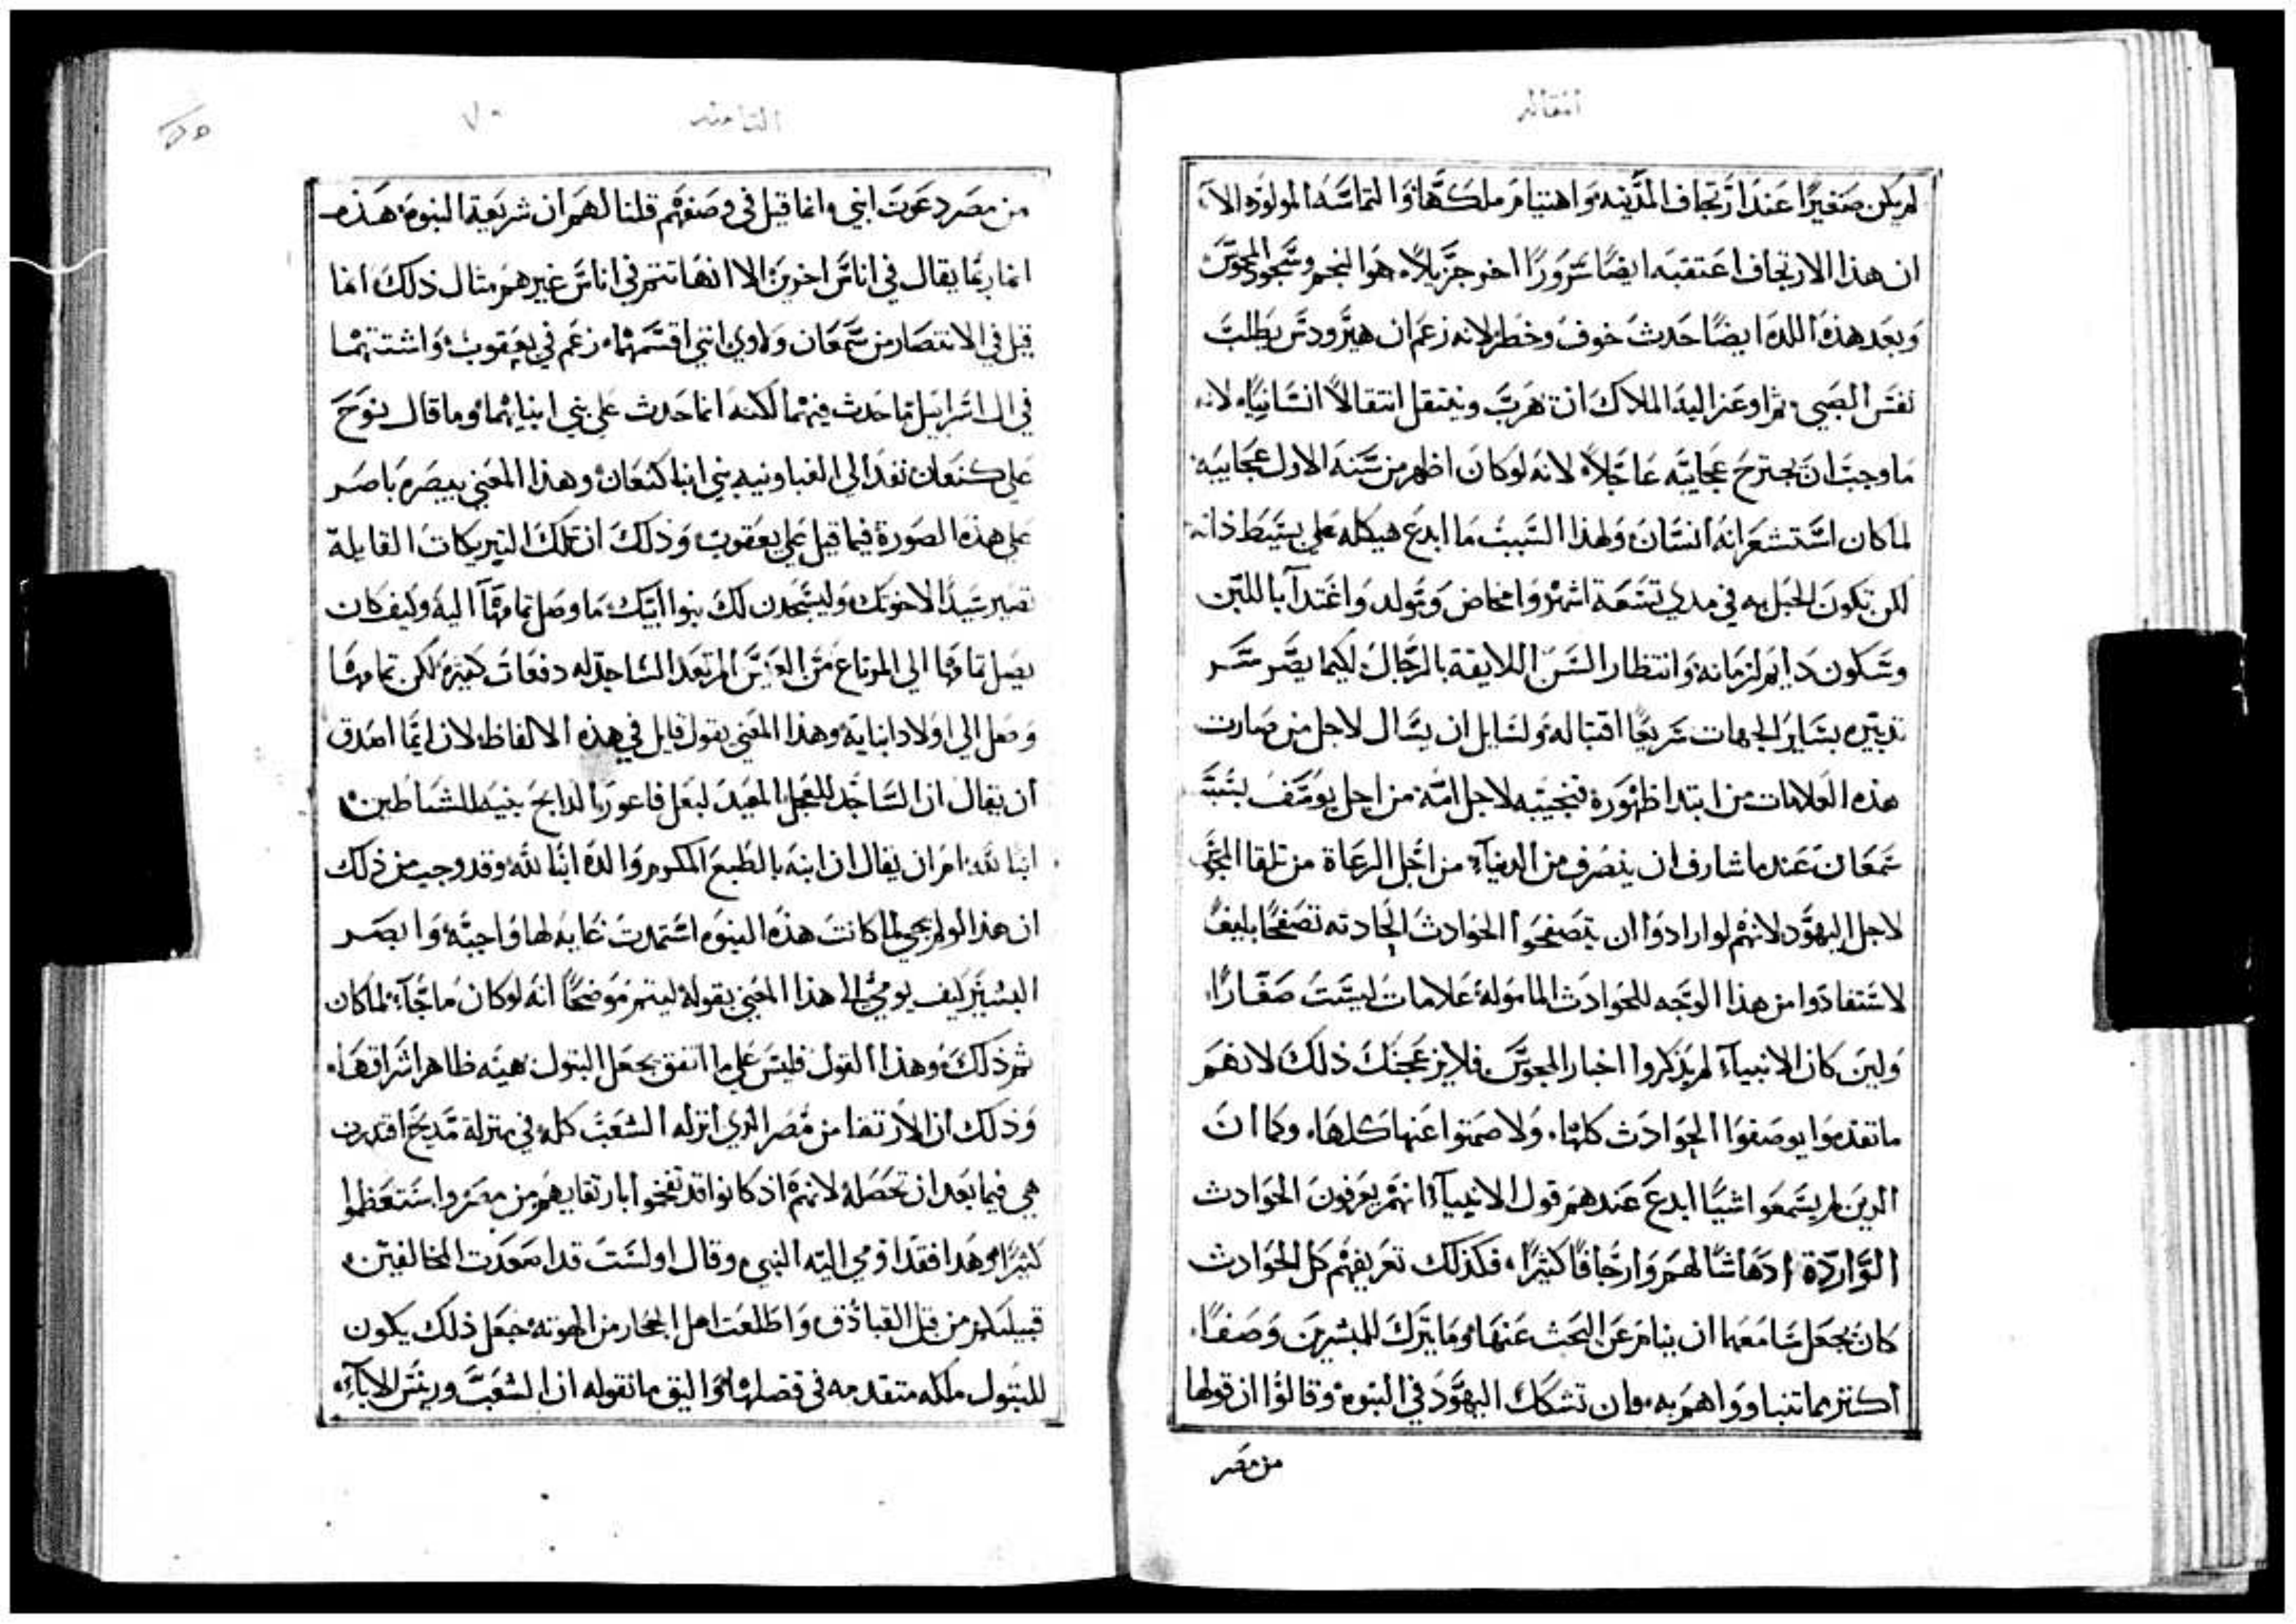 المقاله
لم يكن صغيرًا عند ارتجاف المدينه واهتيام ملكها والتماسه المولود الا
ان هذا الارتجاف اعتقبه ايضًا سرورًا اخر جزيلاً هو النجم وسجود المجوس
وبعد هذه اللده ايضًا حدث خوف وخطر لانه زعم ان هيرودس يطلب
نفس الصبي ثم اوعز اليه الملاك ان يهرب وينتقل انتقالاً انسانيًا لانه
ما وجب ان يجترح عجايبه عاجلاً لانه لو كان اظهر من سنه الاول عجايبه
لما كان استشعر انه انسان ولهذا السبب ما ابدع هيكله على بسيط ذاته
لكن تكون الحبل به في مدي تسعة اشهر وامخاض وتولد واغتدآ باللبن
وسكون دايم لزمانه وانتظار السن اللايقة بالرجال لكيما يصر سر
تدبيره بساير الجهات سريعًا اقتباله ولسايل ان يسال لاجل من صارت
هذه العلامات من ابتدا ظهوره فنجيبه لاجل امه من اجل يوسف بسبب
سمعان عند ما شارف ان ينصرف من الدنيآ من اجل الرعاة من تلقا المجوس
لاجل اليهود لانهم لو ارادوا ان يتصفحوا الحوادث الحادثه تصفحًا بليغًا
لاستفادوا من هذا الوجه للحوادث المامولة علامات ليست صغارًا
ولين كان الانبيآ لم يذكروا اخبار المجوس فلا يزعجنك ذلك لانهم
ما تقدموا يوصفوا الحوادث كلها ولا صمتوا عنها كلها وكما ان
الذين لم يسمعوا اشيًا ابدع عندهم قول الانبيآ انهم يعرفون الحوادث
الواردة ادهاشًا لهم وارجافًا كثيرًا فكذلك تعريفهم كل الحوادث
كان يجعل سامعها ان ينام عن البحث عنها وما يترك للمبشرين وصفًا
اكثر مما تنباووا هم به وان تشكك اليهود في النبوه وقالوا ان قولها
من مصر
الثامنه ٧٠
من مصر دعوت ابني انما قيل في وصفهم قلنا لهم ان شريعة النبوه هذه
انما ربما يقال في اناس اخرين الا انها تتم في اناس غيرهم مثال ذلك انما
قيل في الانتصار من سمعان ولاوي انني اقسمهما زعم في يعقوب واشتتهما
في ال اسراييل ما حدث فيهما لكنه انما حدث علي بني ابنايهما وما قال نوح
علي كنعان نفدا الي الغباونيه بني ابنا كنعان وهذا المعني يبصره باصر
علي هذه الصورة فيما قيل علي يعقوب وذلك ان تلك التبريكات القايلة
تصير سيدًا لاخوتك وليسجدن لك بنوا ابيك ما وصل تمامهآ اليه وكيف كان
يصل تمامها الي المرتاع من العيس المرتعد الساجد له دفعات كثيره لكن تمامها
وصل الي اولاد ابنايه وهذا المعني يقول قايل في هذه الالفاظ لان ايما اصدق
ان يقال ان الساجد للعجل المعيد لبعل فاعور الدابح بنيه للشياطين
ابنا لله ام ان يقال ان ابنه بالطبع المكرم والده ابنا لله وقد وجب من ذلك
ان هذا لو لم يجي لما كانت هذه النبوه استمدت غايه لها واجبه وابصر
البشير كيف يومي الى هذا المعني بقوله ليتم موضحًا انه لو كان ما جآ لما كان
تم ذلك وهذا القول فليس علي ما اتفق يجعل البتول هينه ظاهرا شراقها
وذلك ان الارتقا من مصر الذي انزله الشعب كله في منزلة مديح اقتدرت
هي فيما بعد ان تحصله لانهم اذ كانوا قد تفخموا بارتقايهم من مصر واستعظموا
كثيرًا وهدا فقدا ومي اليه النبي وقال اولست قد اصعدت المخالفين
قبيلتكم من قبل القبادق واطلعت اهل الحجار من الهوته جعل ذلك يكون
للبتول ملكه متقدمه في فضلها واليق ما نقوله ان الشعب ورييس الابآ